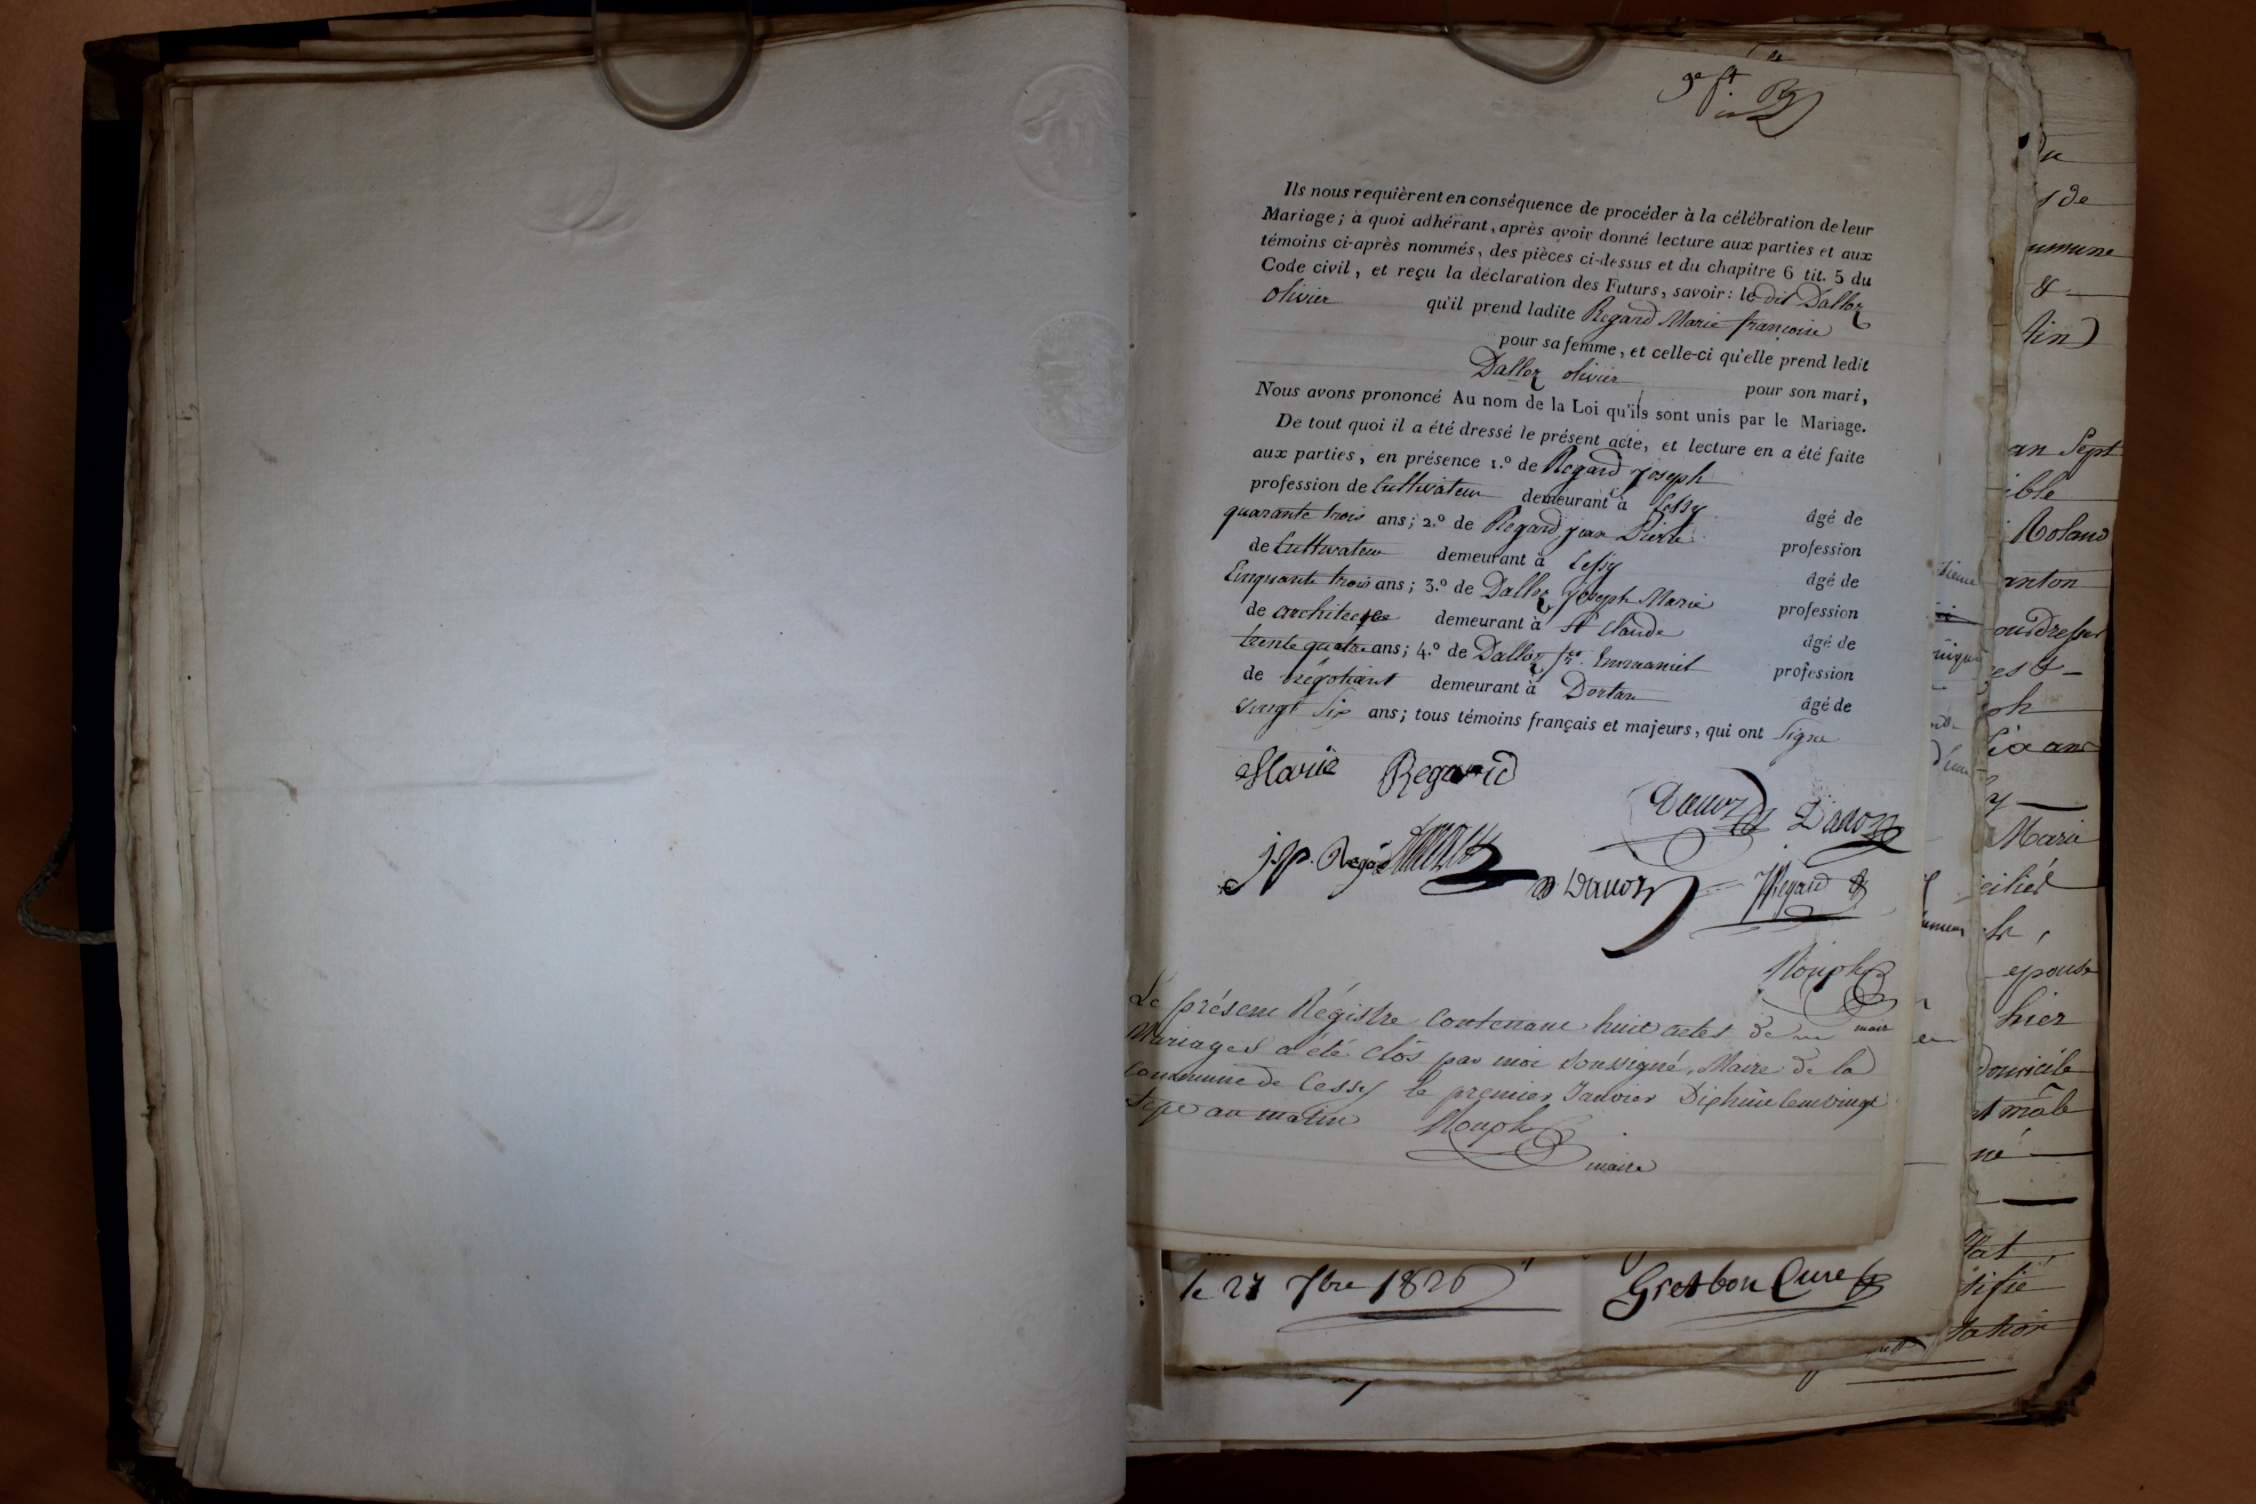 9e ft.
Ils nous requièrent en conséquence de procéder à la célébration de leur
Mariage; à quoi adhérant, après avoir donné lecture aux parties et aux
témoins ci-après nommés, des pièces ci-dessus et du chapitre 6 tit. 5 du
Code civil, et reçu la déclaration des Futurs, savoir: le dit Dalloz
olivier qu'il prend ladite Regard Marie françoise
pour sa femme, et celle-ci qu'elle prend ledit
Dalloz olivier pour son mari,
Nous avons prononcé Au nom de la Loi qu'ils sont unis par le Mariage.
De tout quoi il a été dressé le présent acte, et lecture en a été faite
aux parties, en présence 1.º de Regard joseph
profession de Cultivateur demeurant à Cessy âgé de
quarante trois ans; 2.º de Regard jean Pierre profession
de Cultivateur demeurant à Cessy âgé de
Cinquante trois ans; 3.º de Dalloz joseph Marie profession
de architecte demeurant à St Claude âgé de
trente quatre ans; 4.º de Dalloz fcois Emmanuel profession
de négotiant demeurant à Dortan âgé de
vingt Six ans; tous témoins français et majeurs, qui ont signé
Marie Regard
Dalloz Dalloz
j.p. Regard
Dalloz JRegard
Rouph
maire
Le présent Régistre Contenant huit actes de
Mariages a été clôs par moi soussigné, Maire de la
Commune de Cessy le premier Janvier Dixhuit cent vingt
Sept au matin Rouph
maire
le 27 7bre 1826 Gretbon Curé
Du
s de
ommune
&
tin)
an Sept
ible
Roland
anton
oudresser
es &
ph
ix ans
y
Marie
cilié
épouse
hier
Domicile
t mâle
né
tat
tifié
tation